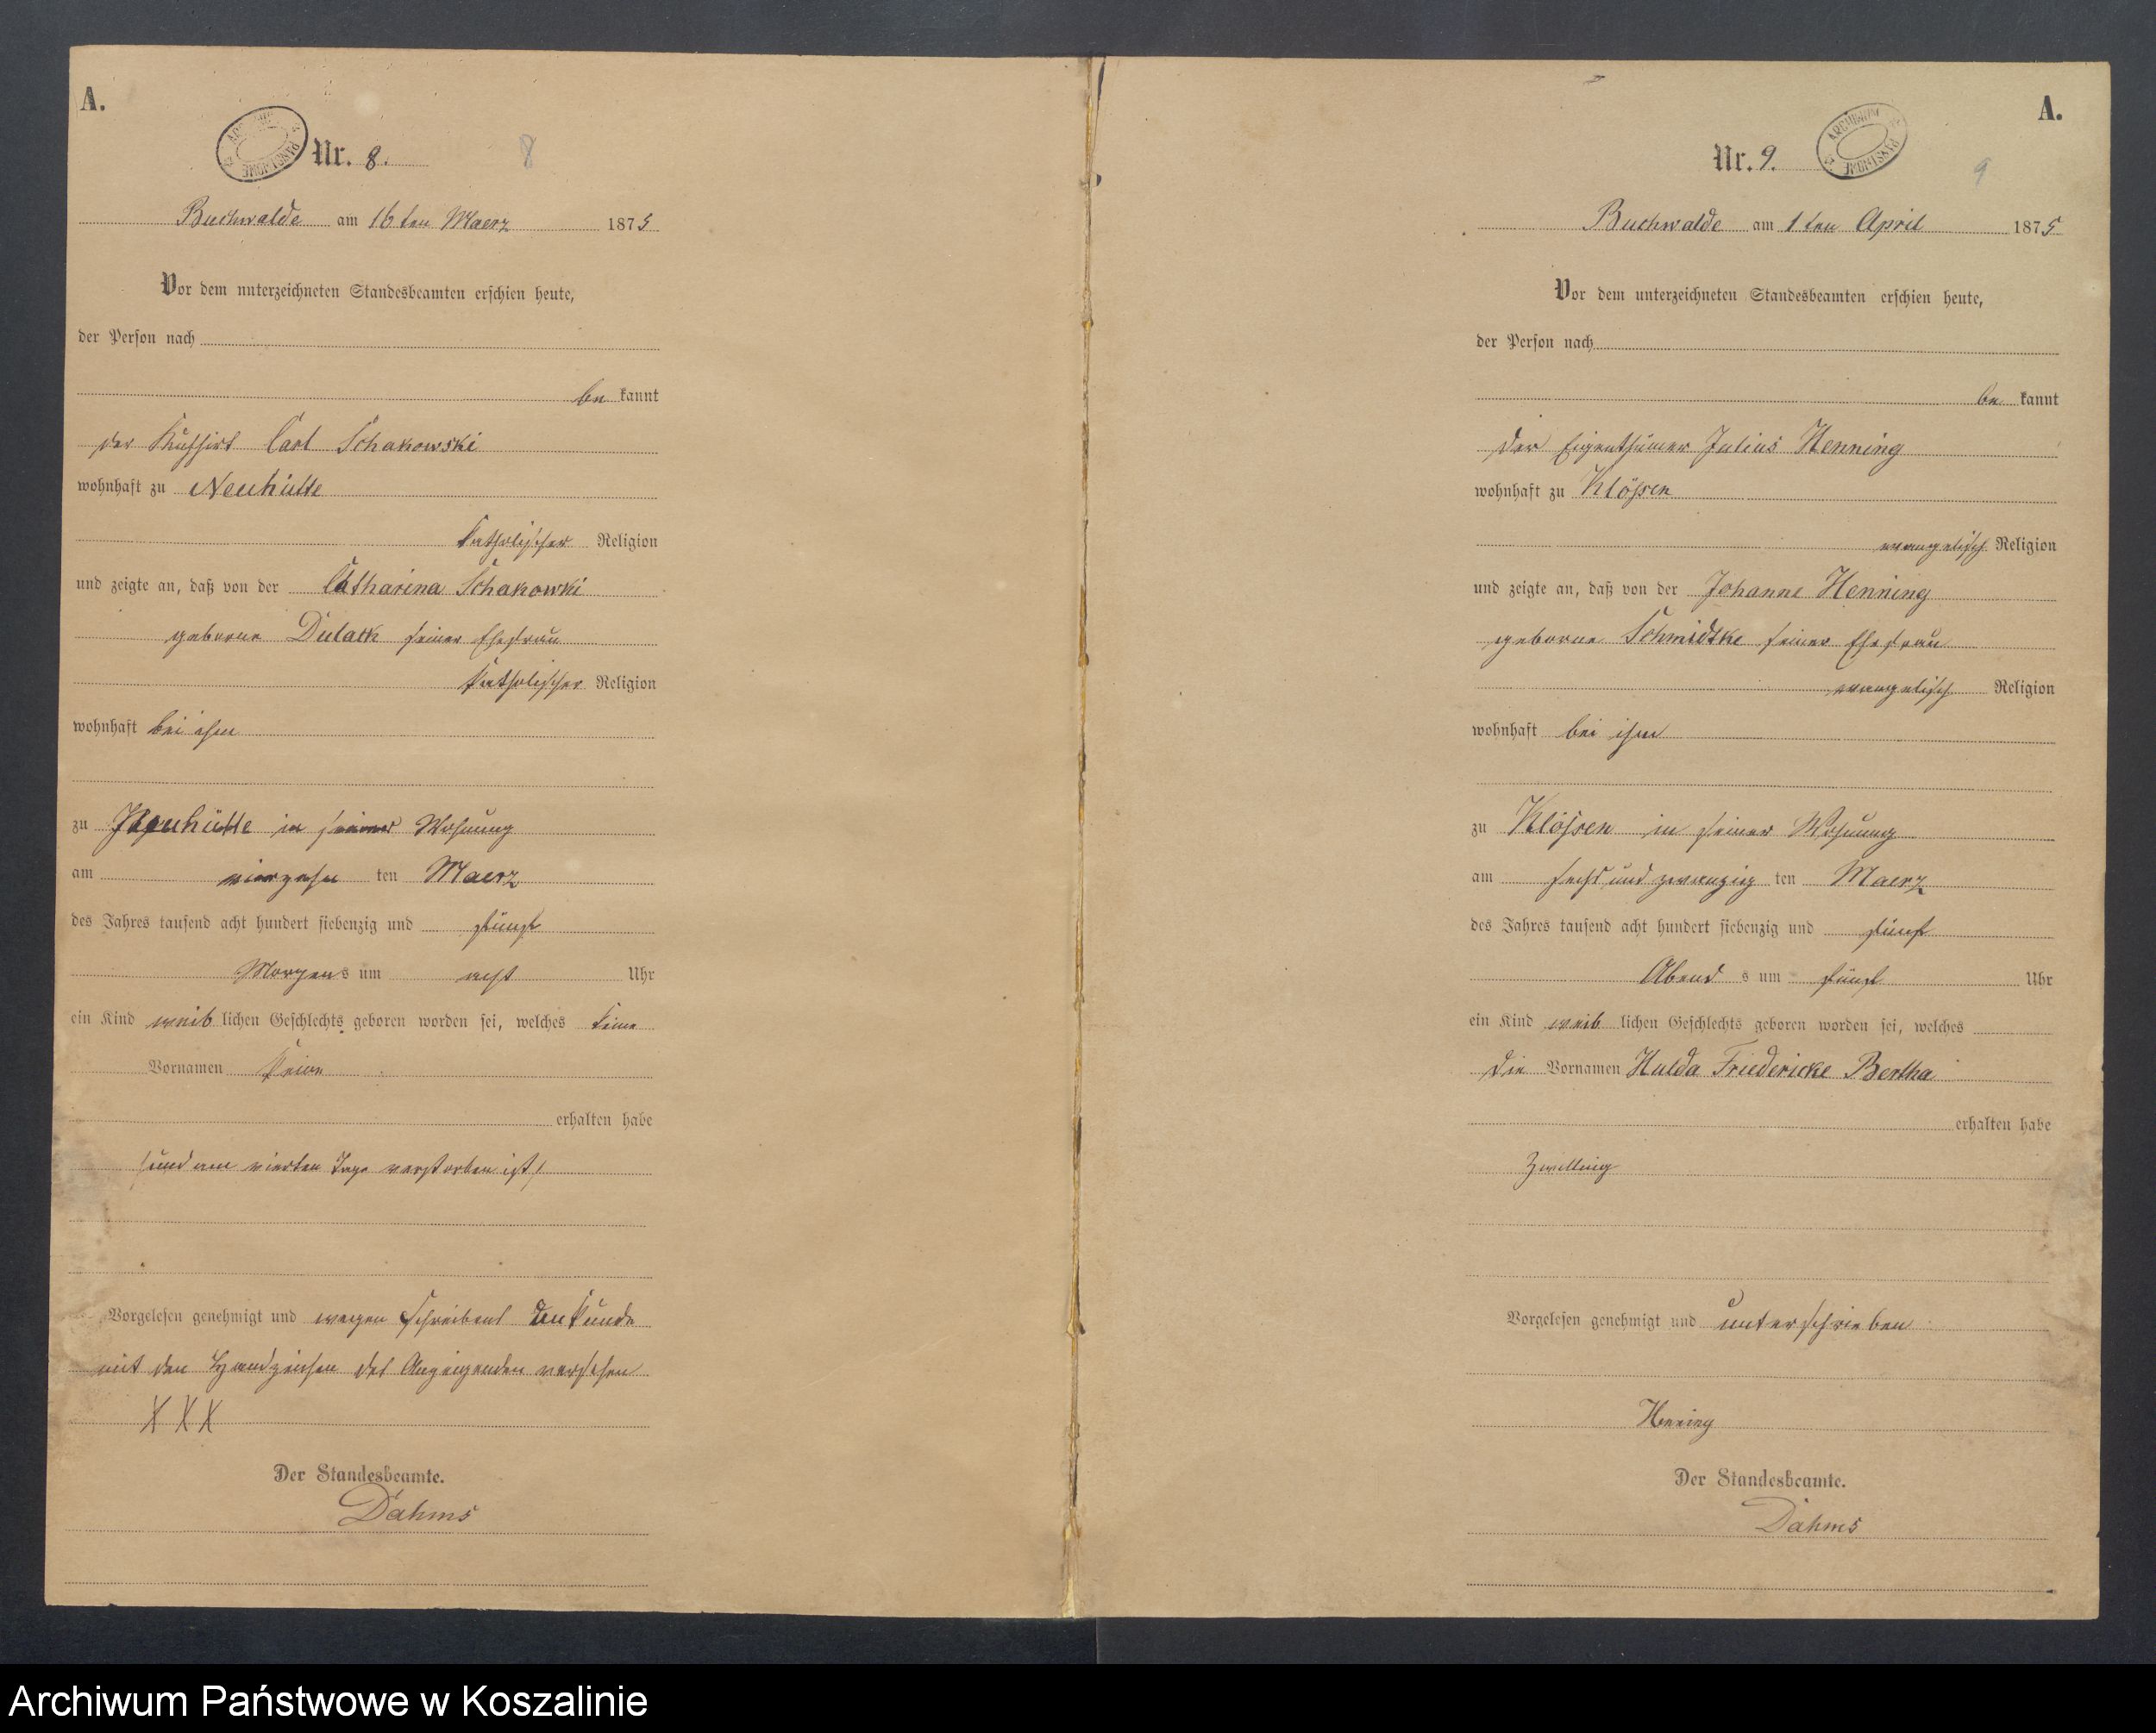 A.
Nr. 8.
8
Buchwalde am 16ten Maerz 1875
Vor dem unterzeichneten Standesbeamten erschien heute,
der Person nach
be kannt
der Kuhhirt Carl Schakowski
wohnhaft zu Neuhütte
katholischer Religion
und zeigte an, daß von der Catharina Schakowki
geborne Dulack seiner Ehefrau
katholischer Religion
wohnhaft bei ihm
zu Neuhütte in seiner Wohnung
am vierzehn ten Maerz
des Jahres tausend acht hundert siebenzig und fünf
Morgens um acht Uhr
ein Kind weib lichen Geschlechts geboren worden sei, welches keine
Vornamen keine
erhalten habe
(und am vierten Tage verstorben ist)
Vorgelesen genehmigt und wegen Schreibens Unkunde
mit den Handzeichen des Anzeigenden versehen
XXX
Der Standesbeamte.
Dahms
A.
Nr. 9.
9
Buchwalde am 1ten April 1875
Vor dem unterzeichneten Standesbeamten erschien heute,
der Person nach
be kannt
der Eigenthümer Julius Henning
wohnhaft zu Klößen
evangelisch Religion
und zeigte an, daß von der Johanne Henning
geborne Schmidtke seiner Ehefrau
evangelisch Religion
wohnhaft bei ihm
zu Klößen in seiner Wohnung
am sechs und zwanzig ten Maerz
des Jahres tausend acht hundert siebenzig und fünf
Abend s um fünf Uhr
ein Kind weib lichen Geschlechts geboren worden sei, welches
die Vornamen Hulda Friedericke Bertha
erhalten habe
Zwilling
Vorgelesen genehmigt und unterschrieben
Henning
Der Standesbeamte.
Dahms
Archiwum Państwowe w Koszalinie